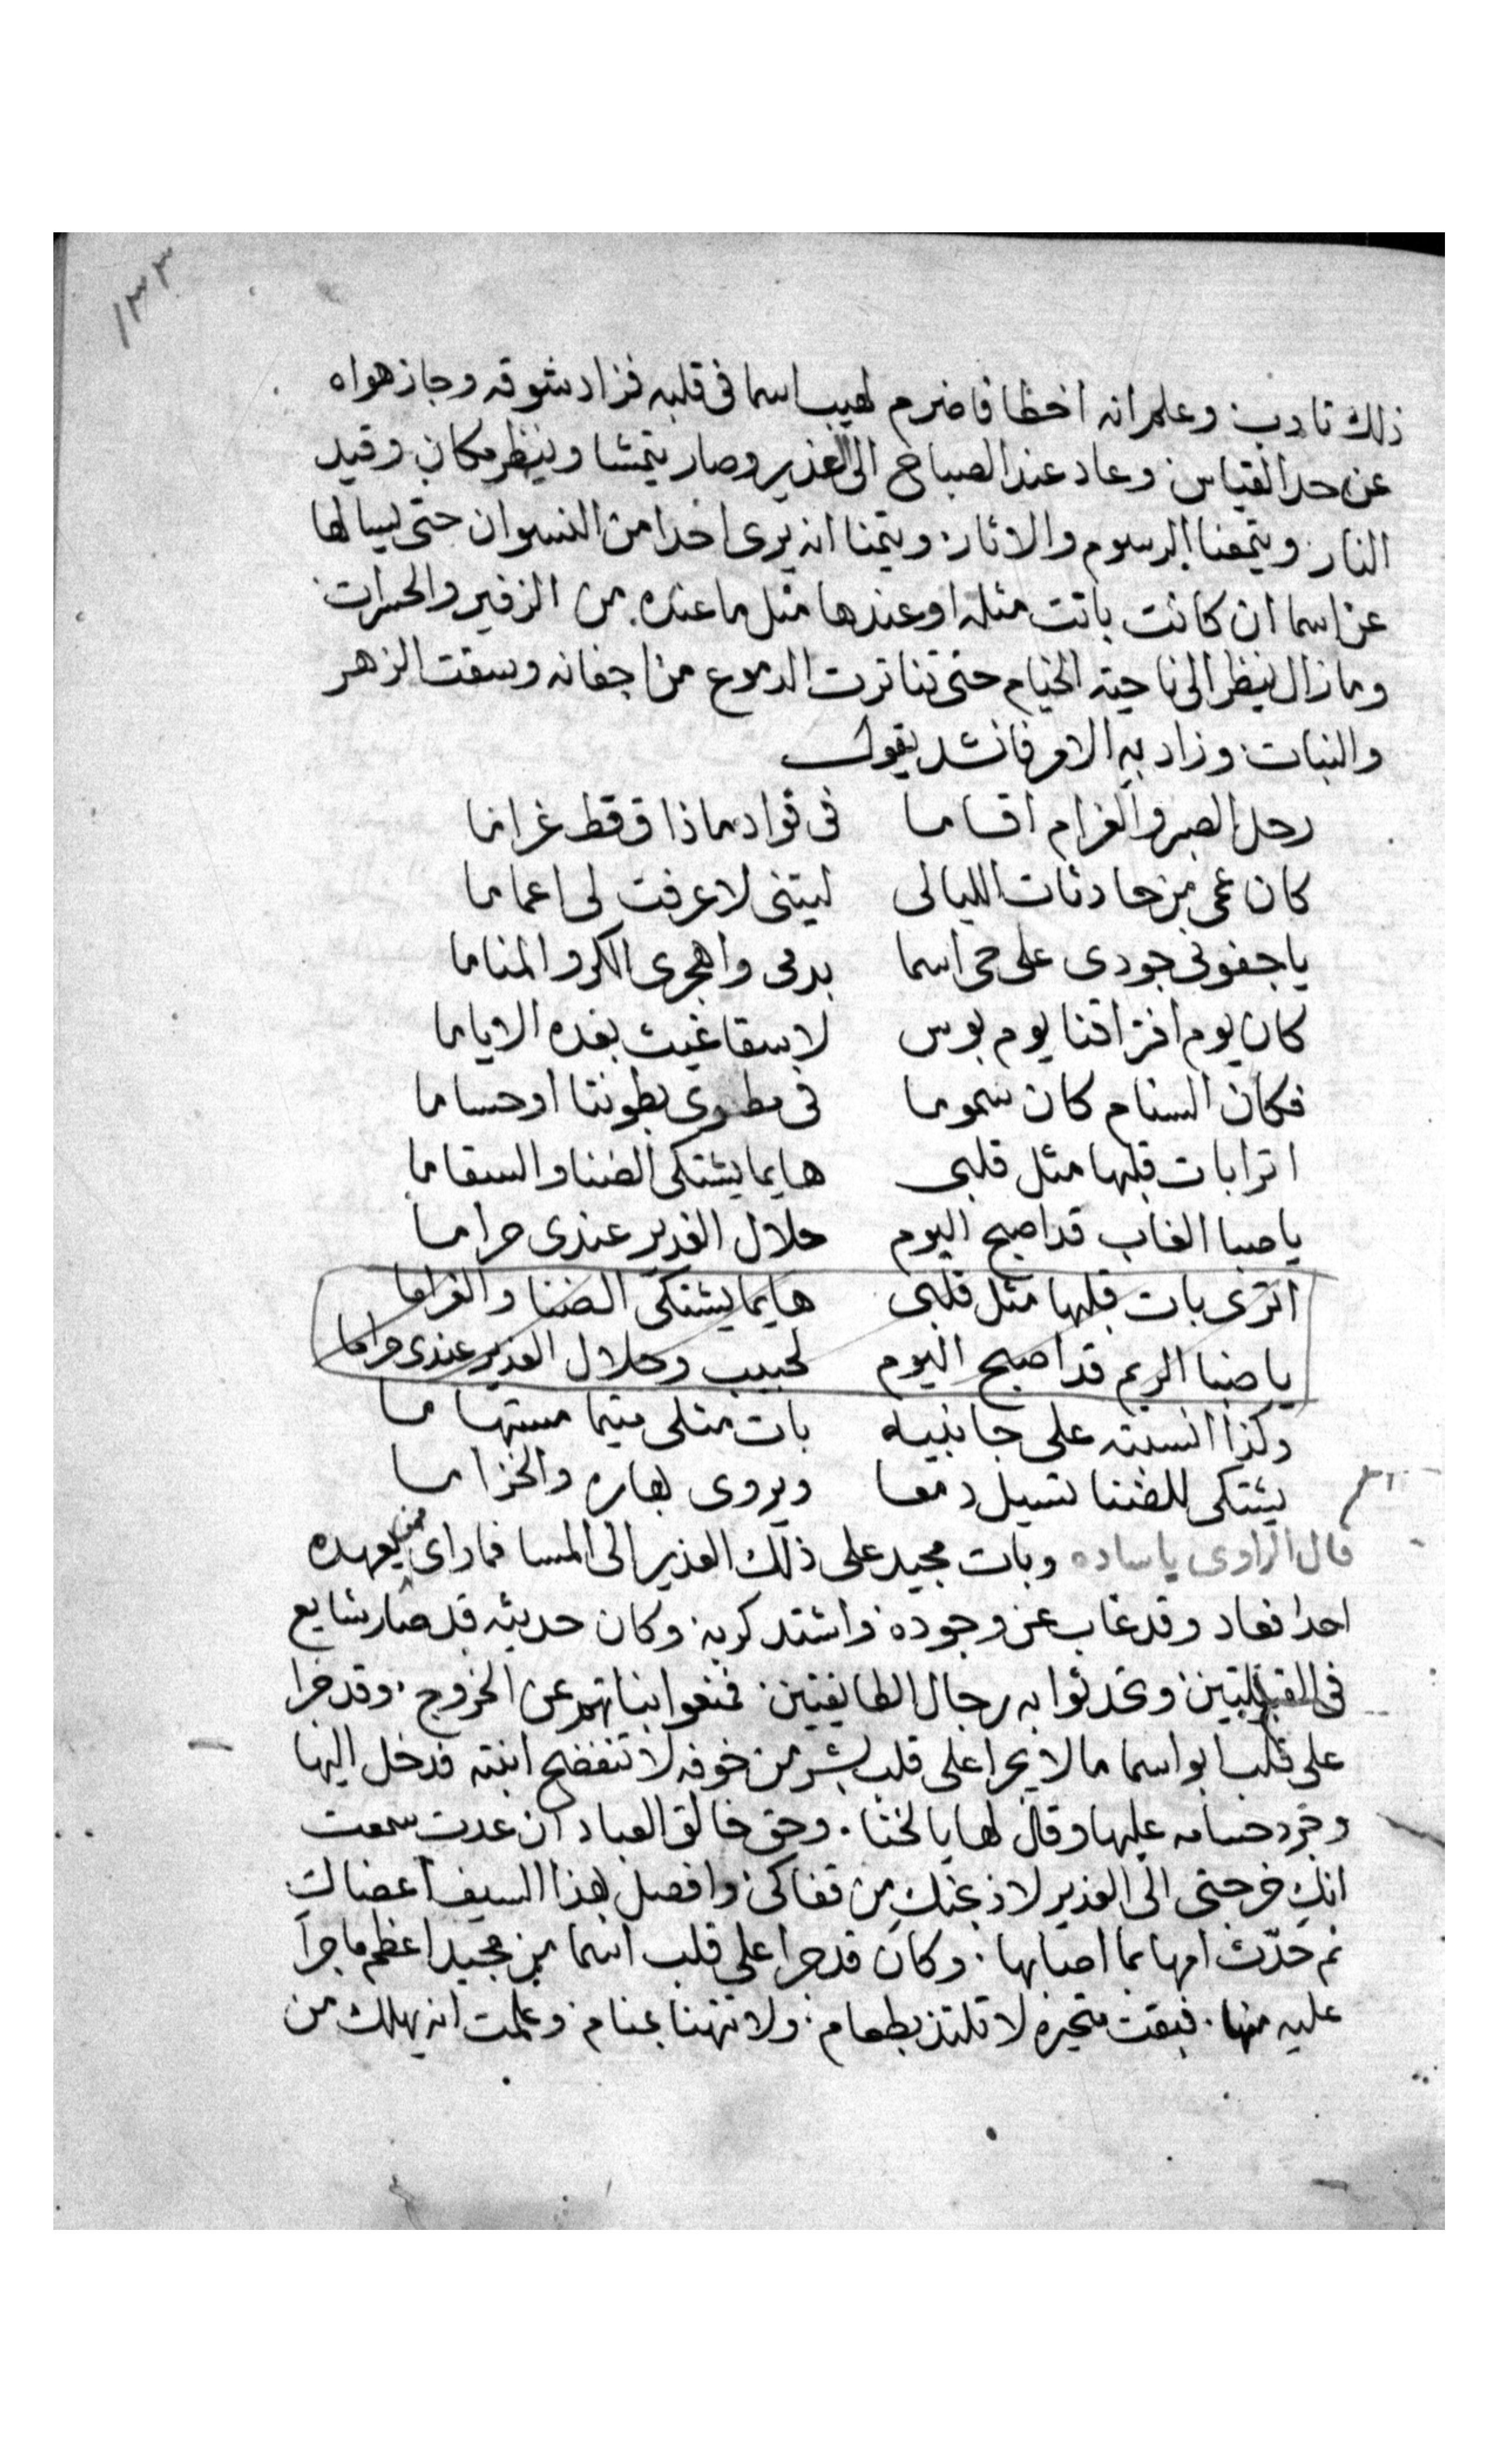 ١٣٣
ذلك تادب وعلم انه اخطا فاضرم لهيب اسما فى قلبه فزاد شوقه وجاز هواه
عن حد القياس وعاد عند الصباح الى الغدير وصار يتمشا وينظر مكان وقيد
النار ويتمعنا الرسوم والاثار ويتمنا انه يرى احدا من النسوان حتى يسالها
عن اسما ان كانت باتت مثله او عندها مثل ما عنده من الزفير والحسرات
وما زال ينظر الى ناحية الخيام حتى تناثرت الدموع من اجفانه وسقت الزهر
والنبات وزاد به الامر فانشد يقول
رحل الصبر والغرام اقاما فى فواد ما ذاق قط غراما
كان عمى من حادثات الليالى ليتنى لا عرفت لى اعماما
يا جفونى جودى على حى اسما بدمى واهجرى الكرا والمناما
كان يوم افتراقنا يوم بوس لا سقا غيث بعده الاياما
فكان السنام كان سموما فى بطوننا او حساما
اترا بات قلبها مثل قلبى هايما يشتكى الضنا والسقاما
يا صبا الغاب قد اصبح اليوم حلال الغدير عندى حراما
اترى بات قلبها مثل قلبى هايما يشتكى الضنا والغراما
يا ضبا الريم قد اصبح اليوم لحبيب وحلال الغدير عندى حراما
وكذا النسبته على جانبيه بات مثلى متيما مستهاما
يشتكى للضنا تسيل دمعا ويروى بهاره والخزاما
قال الراوى ياساده وبات مجيد على ذلك الغدير الى المسا فما راى ممن يعهده
احدا فعاد وقد غاب عن وجوده واشتد كربه وكان حديثه قد صار شايع
فى القبيلتين وتحدثوا به رجال الطايفتين فمنعوا بناتهم عن الخروج وقد جرا
على قلب ابو اسما ما لا يجرا على قلب بشر من خوفه لا تنفضح ابنته فدخل اليها
وجرد حسامه عليها وقال لها يا لخنا وحق خالق العباد ان عدت سمعت
انك خرجتى الى الغدير لاذبحنك من قفاكى وافصل بهذا السيف اعضاك
ثم حدّث امها بما اصابها وكان قد جرا على قلب اسما من مجيد اعظم ما جرا
عليه منها فبقت متحيره لا تلتذ بطعام ولا تتهنا بمنام وعلمت انه يهلك من